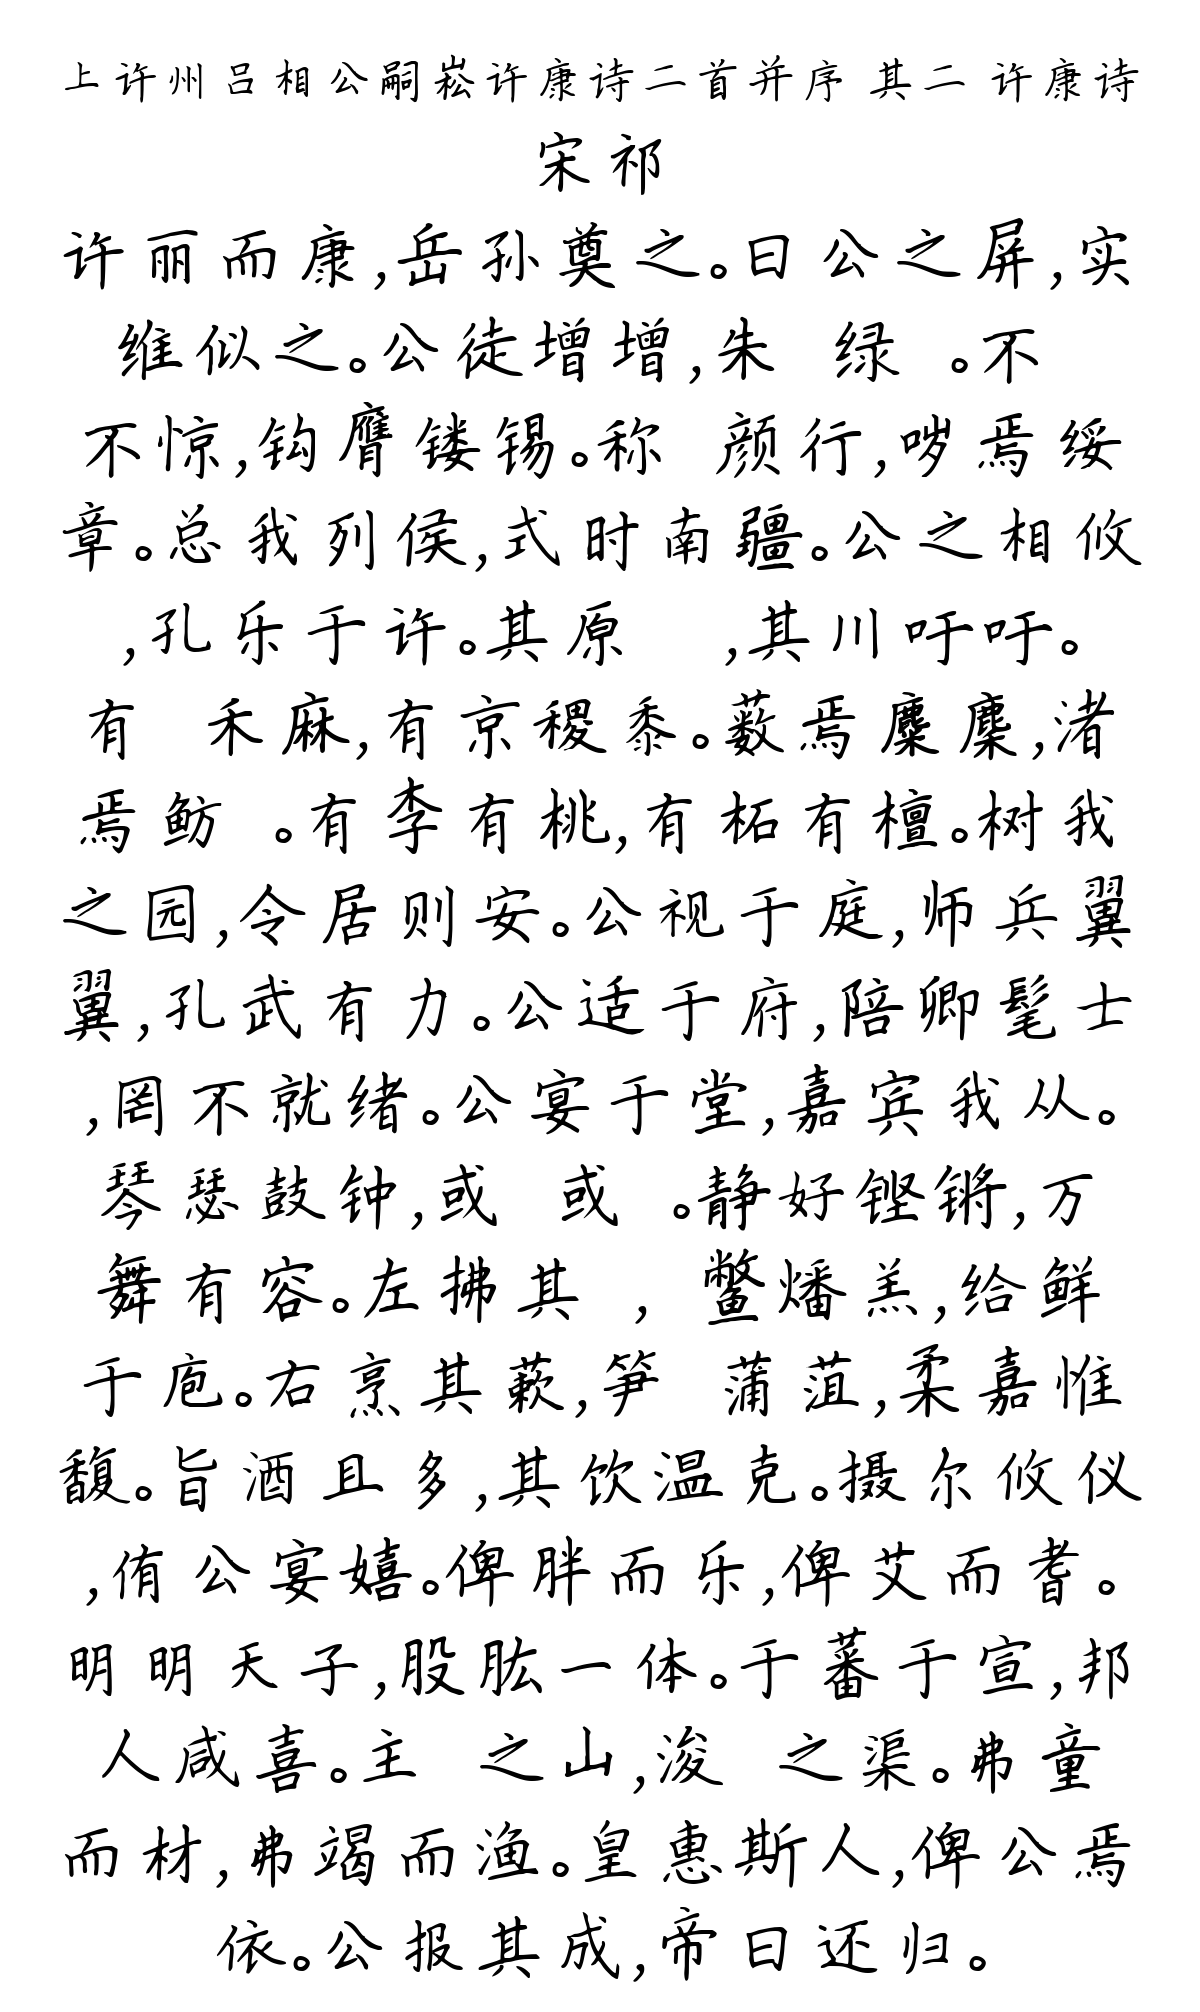 上许州吕相公嗣崧许康诗二首并序 其二 许康诗
宋祁
许丽而康,岳孙奠之。曰公之屏,实
维似之。公徒增增,朱 绿 。不
不惊,钩膺镂锡。称 颜行,哕焉绥
章。总我列侯,式时南疆。公之相攸
,孔乐于许。其原 ,其川吁吁。
有 禾麻,有京稷黍。薮焉麇麇,渚
焉鲂 。有李有桃,有柘有檀。树我
之园,令居则安。公视于庭,师兵翼
翼,孔武有力。公适于府,陪卿髦士
,罔不就绪。公宴于堂,嘉宾我从。
琴瑟鼓钟,或 或 。静好铿锵,万
舞有容。左拂其 , 鳖燔羔,给鲜
于庖。右烹其蔌,笋 蒲菹,柔嘉惟
馥。旨酒且多,其饮温克。摄尔攸仪
,侑公宴嬉。俾胖而乐,俾艾而耆。
明明天子,股肱一体。于蕃于宣,邦
人咸喜。主 之山,浚 之渠。弗童
而材,弗竭而渔。皇惠斯人,俾公焉
依。公报其成,帝曰还归。